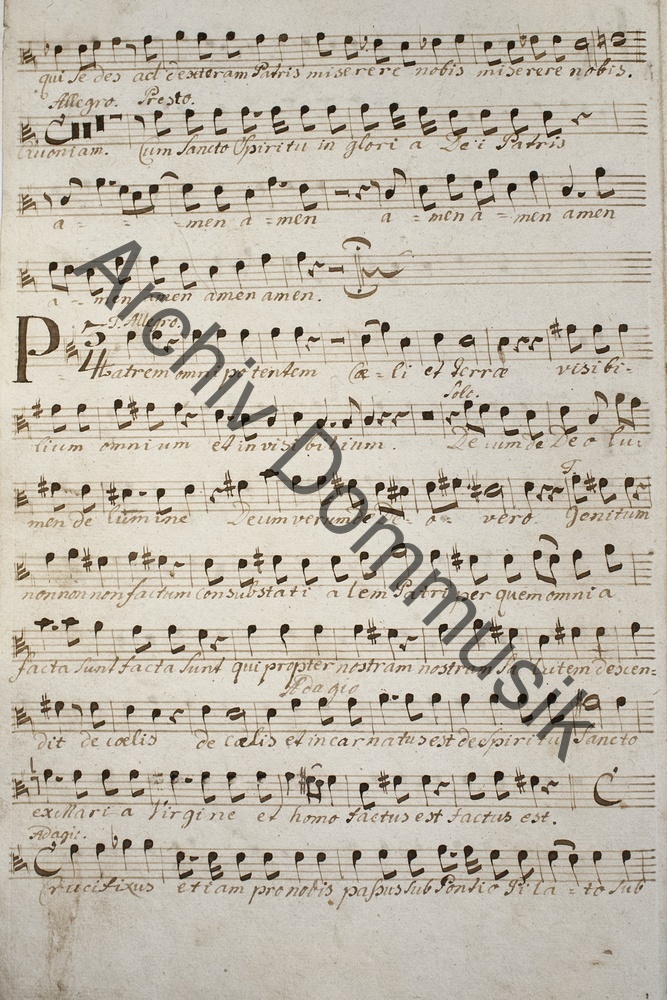 qui sedes ad dexteram Patris miserere nobis miserere nobis.
Allegro. Presto.
Cum Sancto Spiritu in glori a Dei Patris
a - - - men a - men a - men a - men amen
a - men amen amen amen.
T. Allegro.
Patrem omnipotentem Cœ - li et terræ visibi-
lium omnium et invisibilium. Deum de Deo lu-
Solo.
men de lumine Deum verum de De - o - vero. Genitum
T.
non non non factum consubstanti alem Patri per quem omnia
facta sunt facta sunt qui propter nostram nostram salutem descen-
Adagio
dit de cœlis de cœlis et incarnatus est de Spiritu Sancto
ex Mari a Virgine et homo factus est factus est.
Adagio.
Crucifixus etiam pro nobis passus sub Pontio Pila - to sub
Archiv Dommusik